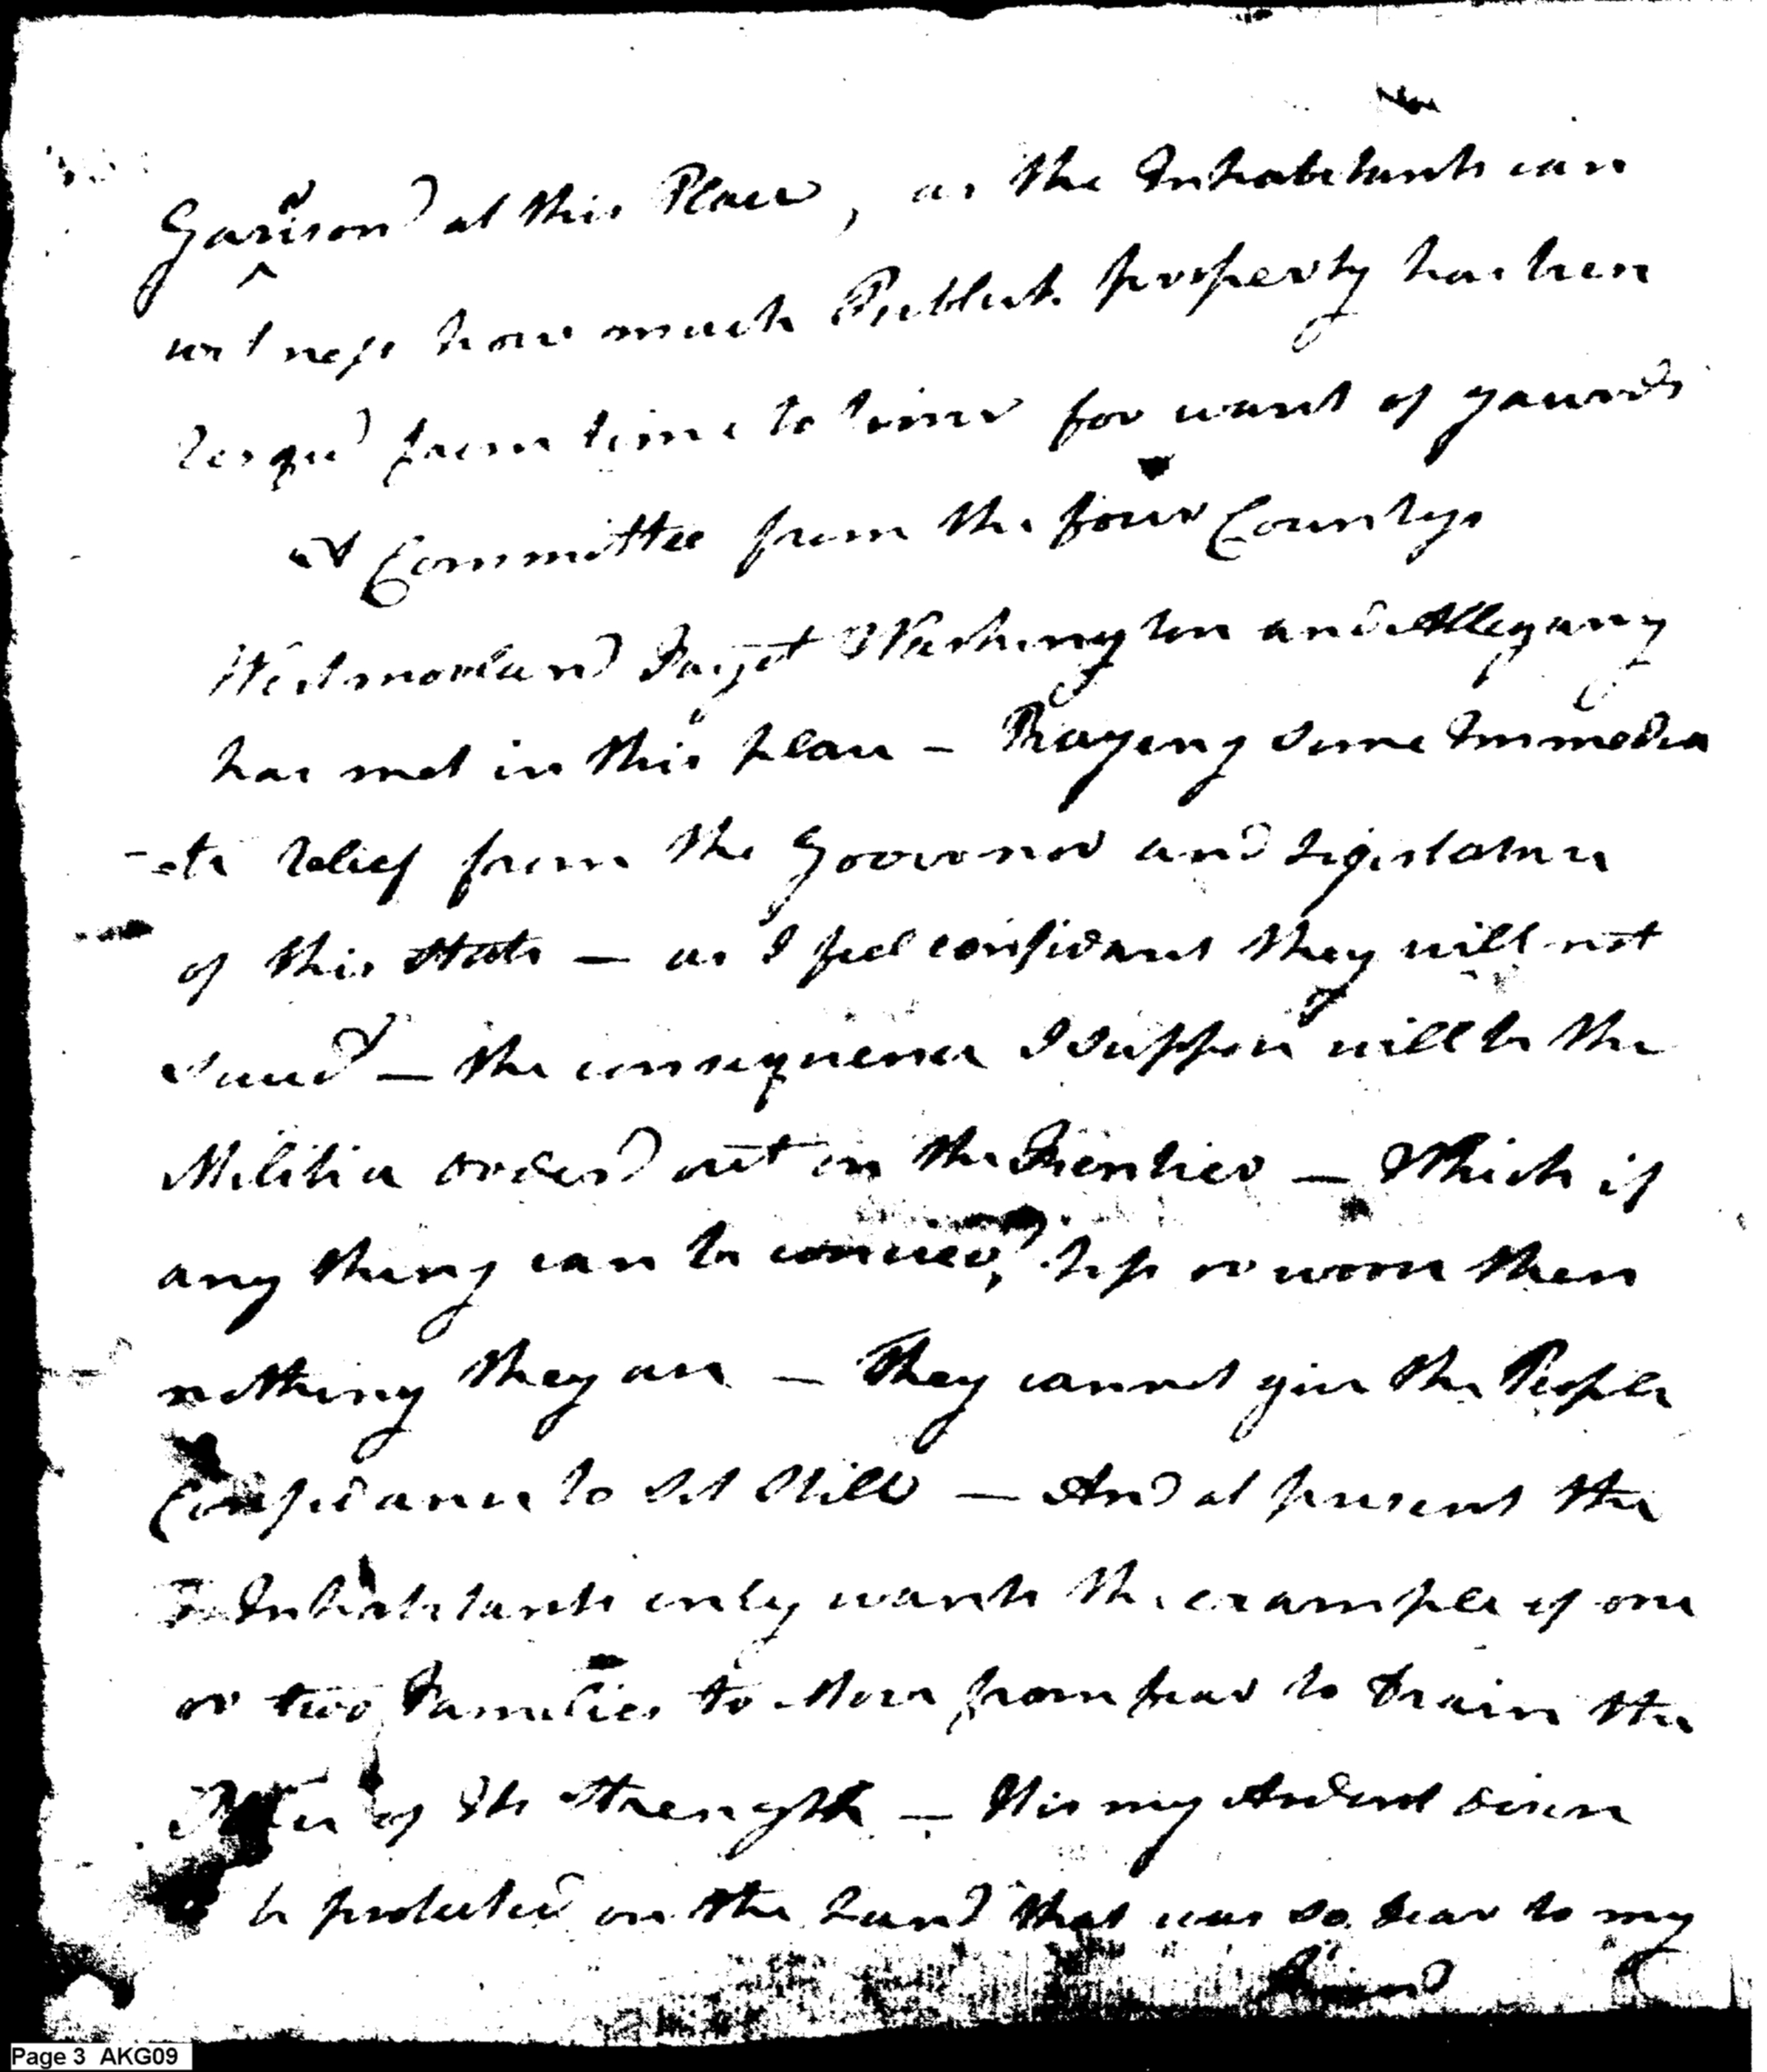 Garrison'd at this Place, as the Inhabitants can
witness how much Publick property has been
resqu'd from time to time for want of gaurds
A Committee from the four Countys
Westmorland Fayet Washington and Allegany
has met in this place - Praying some Immedia
-ate relief from the Govornor and Legislature
of this State — as I feel confidant they will not
— the consequence I suppose will be the
Militia order'd out on the Frontier — Which if
any thing can be less or worse then
nothing they are — They cannot give the People
Confidance to set still — And at present the
Inhabitants only wants the example of one
or two Families to move from fear to drain the
of Its Strength — Its my Ardent desire
be protected on the Land that was so dear to my